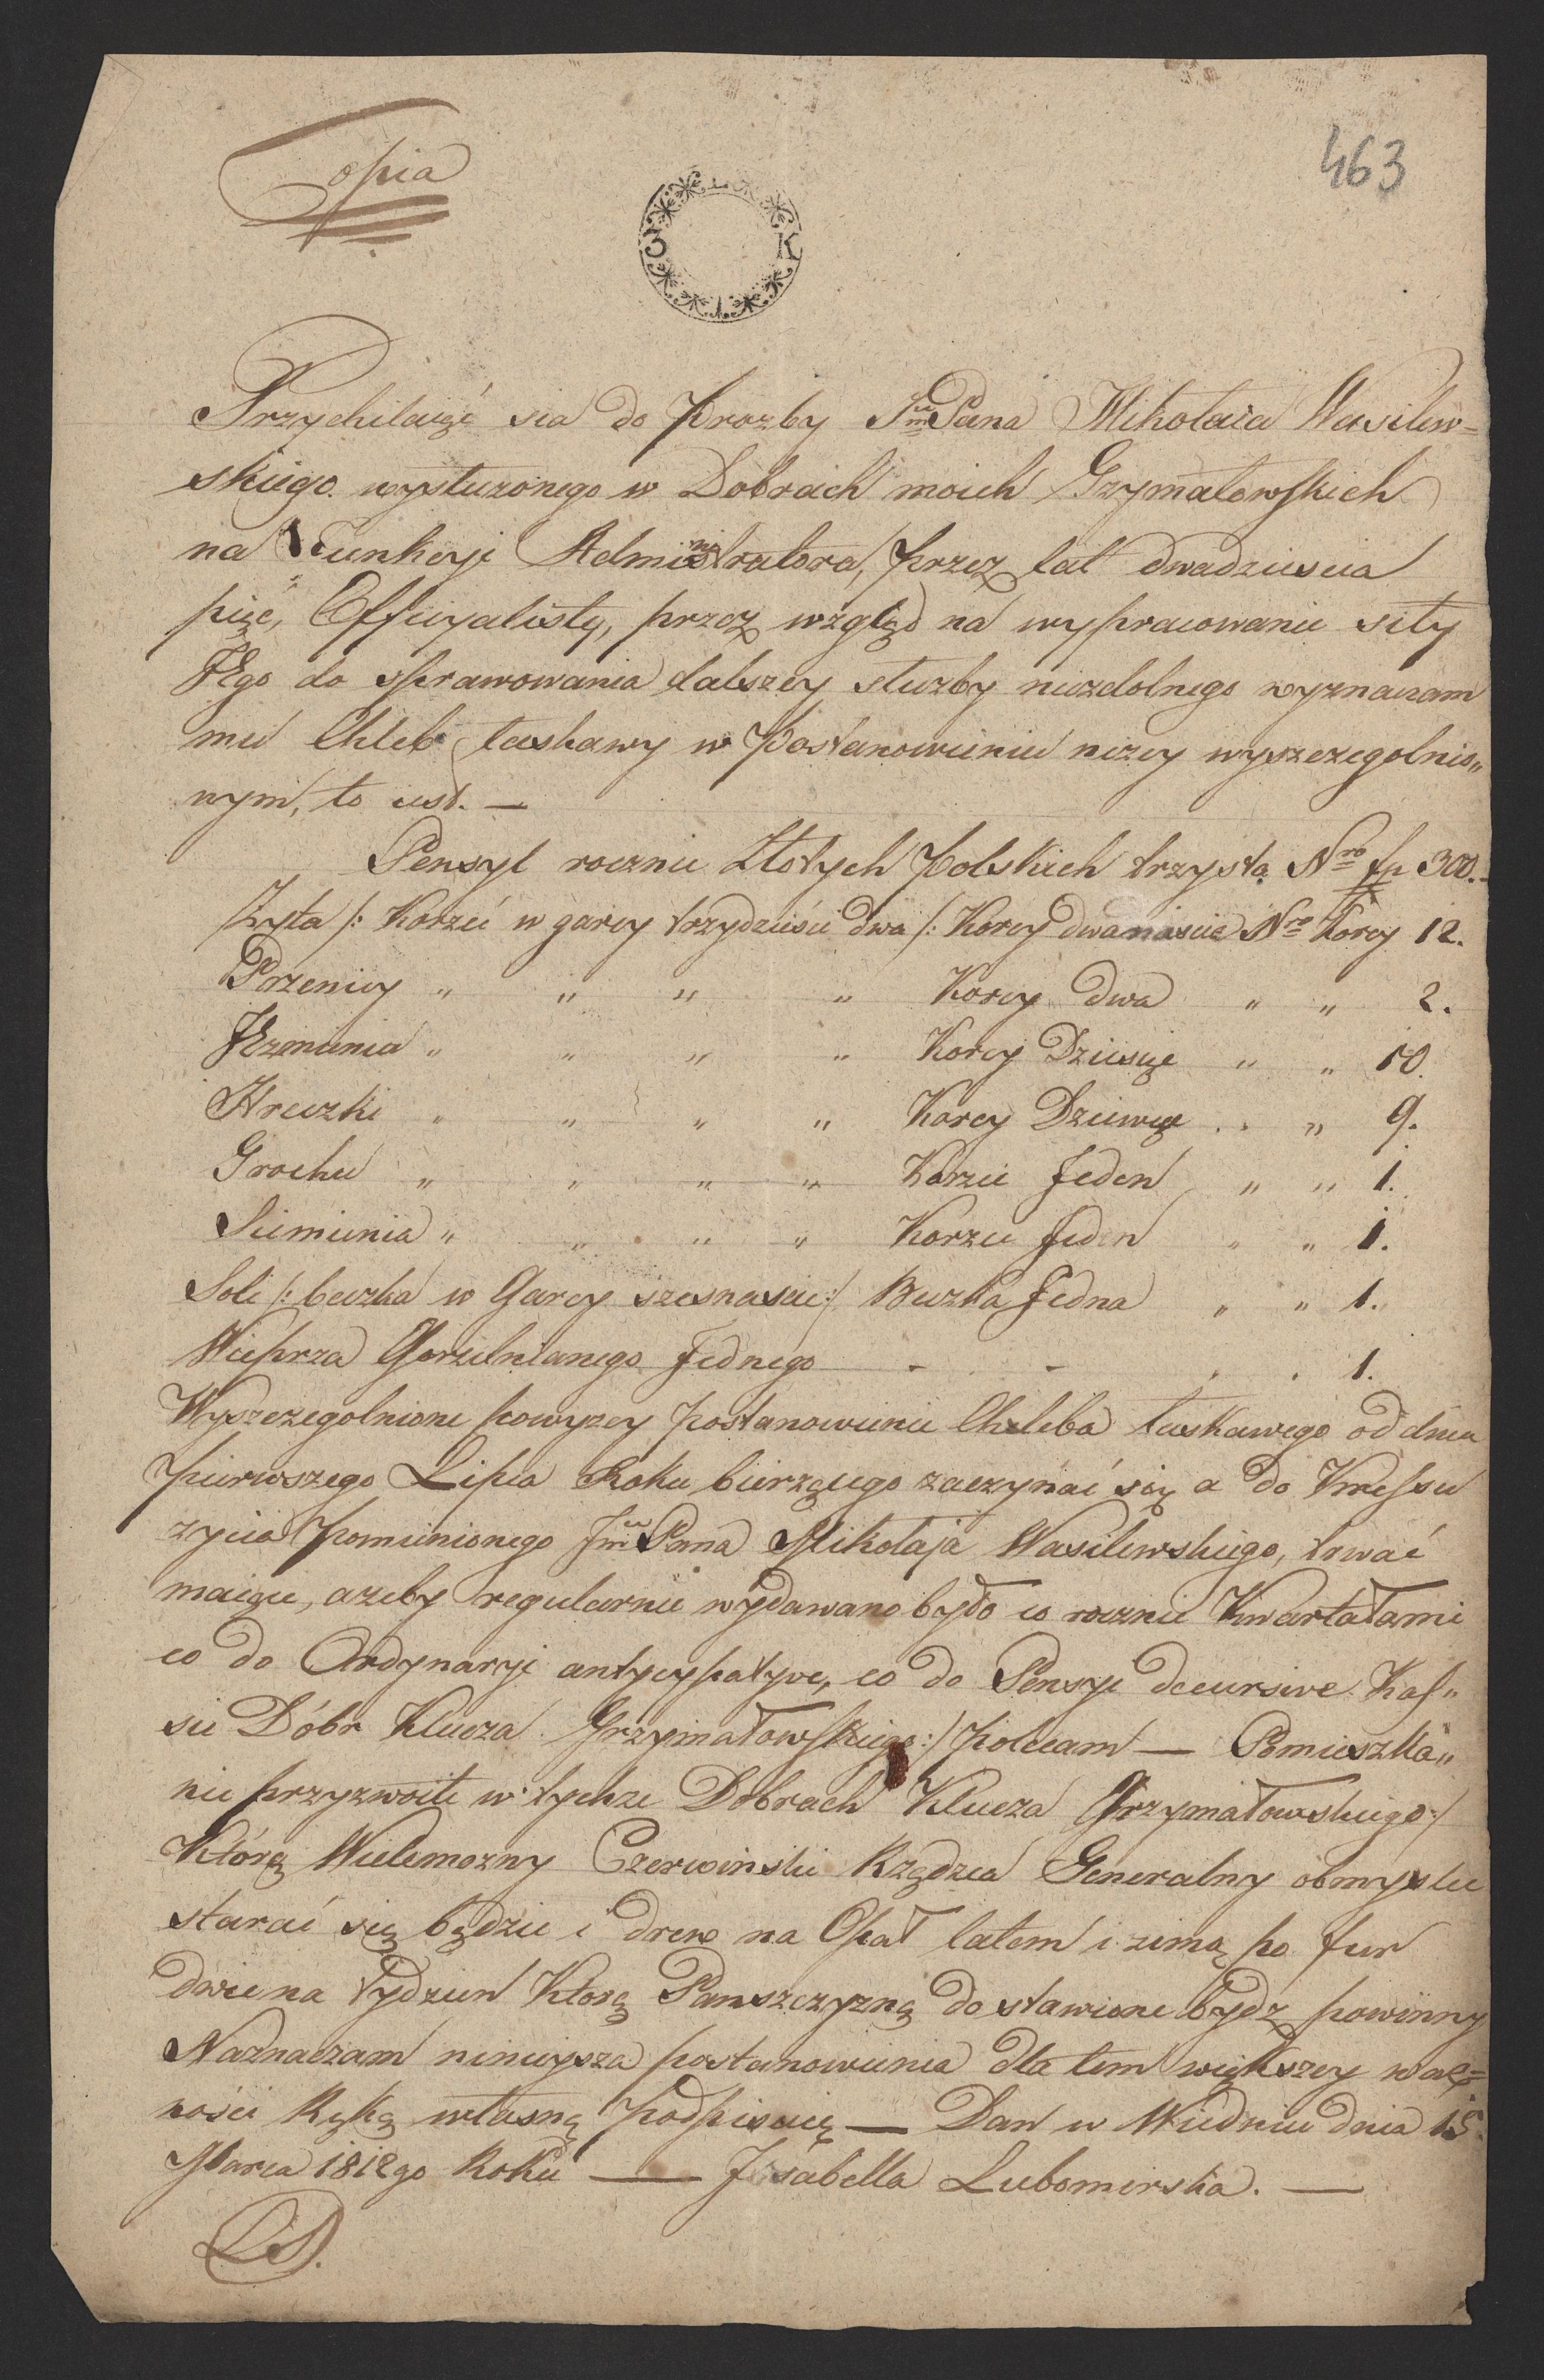 Copia
463
3 K
Przychilaiąć sia do Prozby Jmć Pana Mikołaia Wasilew=
skiego wysłużonego w Dobrach moich Grzymałowskich
na Funkcyi Administratora, przez lat dwadziescia
pięć, Officyalisty, przez wzgląd na wypracowanie siły
JEgo do sprawowania dalszey słuzby niezdolnego wyznaczam
mu Chleb łaskawy w Postanowieniu nizey wyszczegolnio„
nym, to iest. —
Pensyi rocznie Złotych Polskich trzysta Nro fp 300.-
Zyta /: Korzec w garcy trzydzieści dwa /: Korcy dwanascie Nro Korcy 12.
Przenicy „ „ „ „ Korcy dwa „ „ 2.
JEzmienia „ „ „ „ Korcy Dziesięc „ „ 10.
Hreczki „ „ „ „ Korcy Dziewięc . . „ 9.
Grochu „ „ „ „ Korzec Jeden „ „ 1.
Siemienia „ „ „ „ Korzec Jeden „ „ 1.
Soli /: beczka w Garcy szesnascie :/ Beczka Jedna „ „ 1.
Wieprza Gorzelnianego Jednego - - . . 1.
Wyszczegolnione powyzey postanowienie Chleba łaskawego od dnia
pierwszego Lipca Roku bierzącego zaczynać się a do Kressu
zycia pomienionego Jmć Pana Mikołaja Wasilewskiego, trwać
maiące, azeby regularnie wydawano było co rocznie Kwartałami
co do Ordynaryi antycypatyve, co do Pensyi decursive Kas„
sie Dóbr Klucza Grzymałowskiego :/ polecam — Pomieszka„
nie przyzwoite w tychze Dobrach Klucza Grzymałowskiego :/
Którą Wielemozny Czerwinski Rządzca Generalny obmyslec
starać się będzie i drew na Opał latem i zimą po fur
dwie na tydzień Którą Panszczyzną dostawione bydz powinny
Naznaczam ninieysza postanowienia dla tem większey waż=
ności Ręką własną Podpisuię — Dan w Wiedniu dnia 15.
Marca 1812go Roku — Jsabella Lubomirska. —
LS.